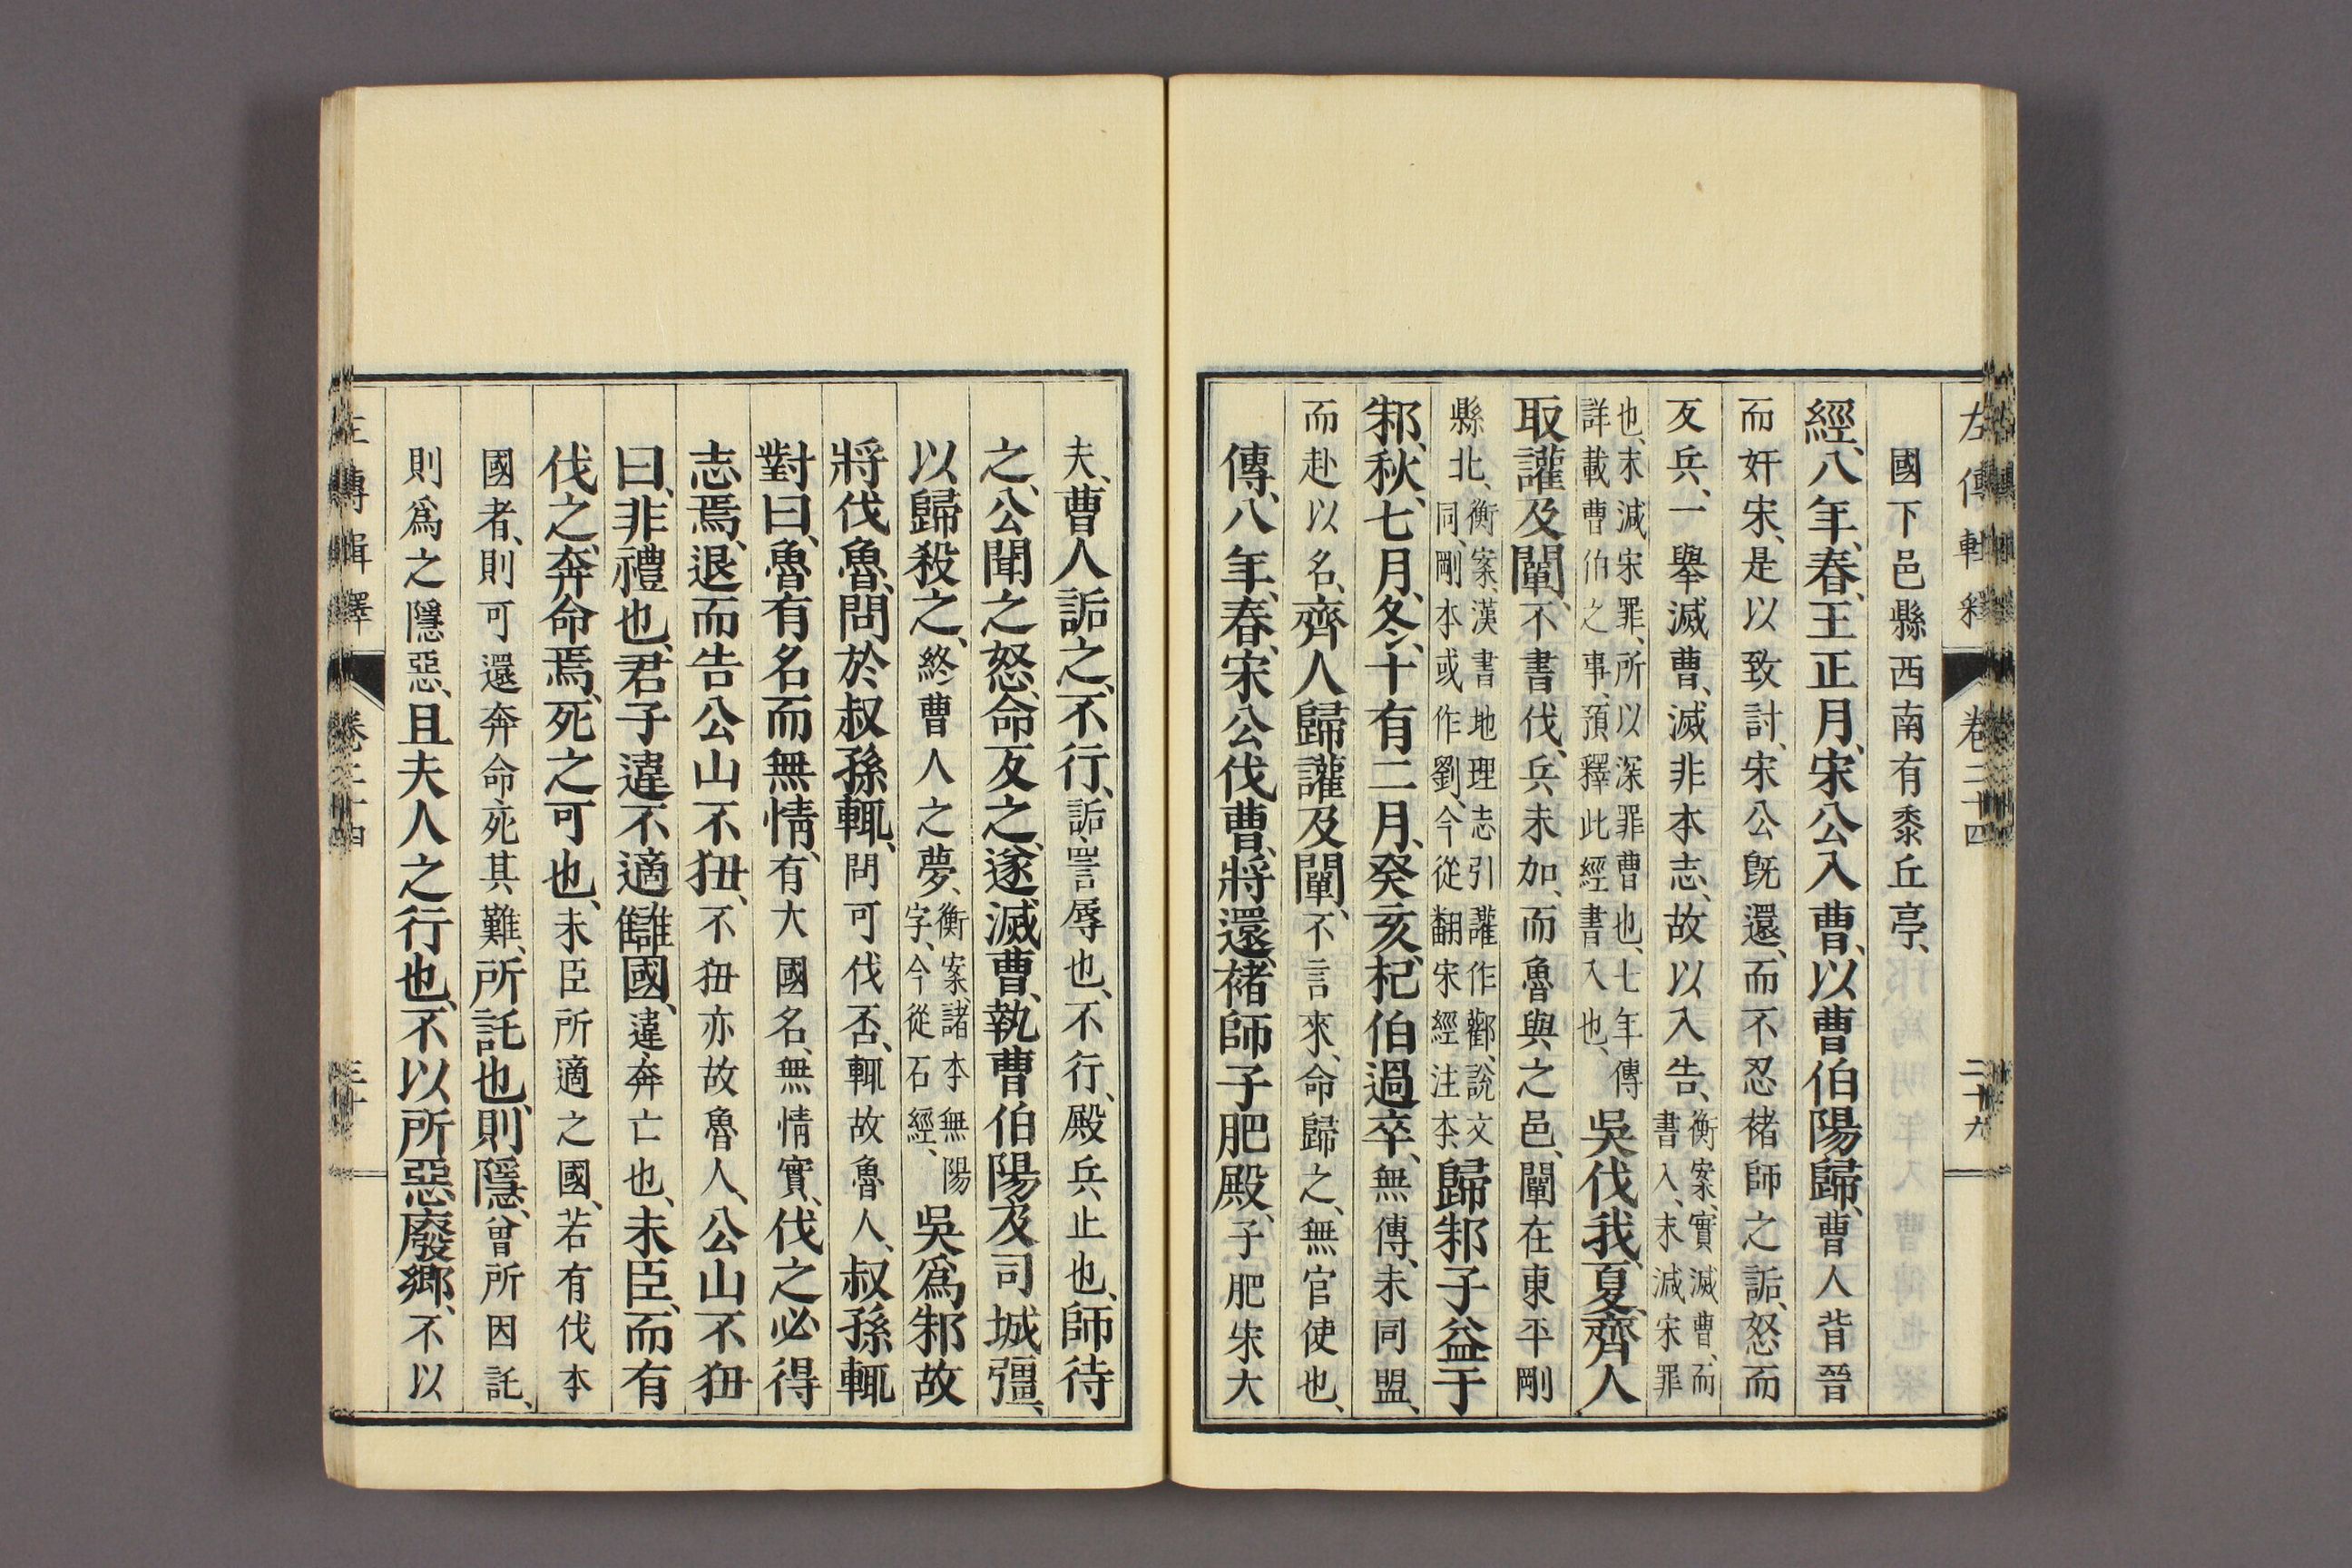 左傳輯釋 卷二十四 二十九
國下邑縣西南有黍丘亭、
經、八年、春、王正月、宋公入曹、以曹伯陽歸、曹人背晉
而奸宋、是以致討、宋公旣還、而不忍褚師之詬、怒而
反兵、一舉滅曹、滅非本志、故以入告、衡案、實滅曹、而書入、未減宋罪
也、未減宋罪、所以深罪曹也、七年傳詳載曹伯之事、預釋此經書入也、吳伐我、夏、齊人
取讙及闡、不書伐、兵未加、而魯與之邑、闡在東平剛
縣北、衡案、漢書地理志引讙作酄、說文同、剛本或作劉、今從翻宋經注本、歸邾子益于
邾、秋、七月、冬、十有二月、癸亥、杞伯過卒、無傳、未同盟、
而赴以名、齊人歸讙及闡、不言來、命歸之、無官使也、
傳、八年、春、宋公伐曹、將還、褚師子肥殿、子肥宋大
夫、曹人詬之、不行、詬、詈辱也、不行、殿兵止也、師待
之、公聞之怒、命反之、遂滅曹、執曹伯陽及司城彊、
以歸殺之、終曹人之夢、衡案、諸本無陽字、今從石經、吳爲邾故
將伐魯、問於叔孫輒、問可伐否、輒故魯人、叔孫輒
對曰、魯有名而無情、有大國名、無情實、伐之必得
志焉、退而告公山不狃、不狃亦故魯人、公山不狃
曰、非禮也、君子違不適讎國、違、奔亡也、未臣、而有
伐之、奔命焉、死之可也、未臣所適之國、若有伐本
國者、則可還奔命死其難、所託也、則隱、曾所因託、
則爲之隱惡、且夫人之行也、不以所惡廢鄉、不以
左傳輯釋 卷二十四 三十